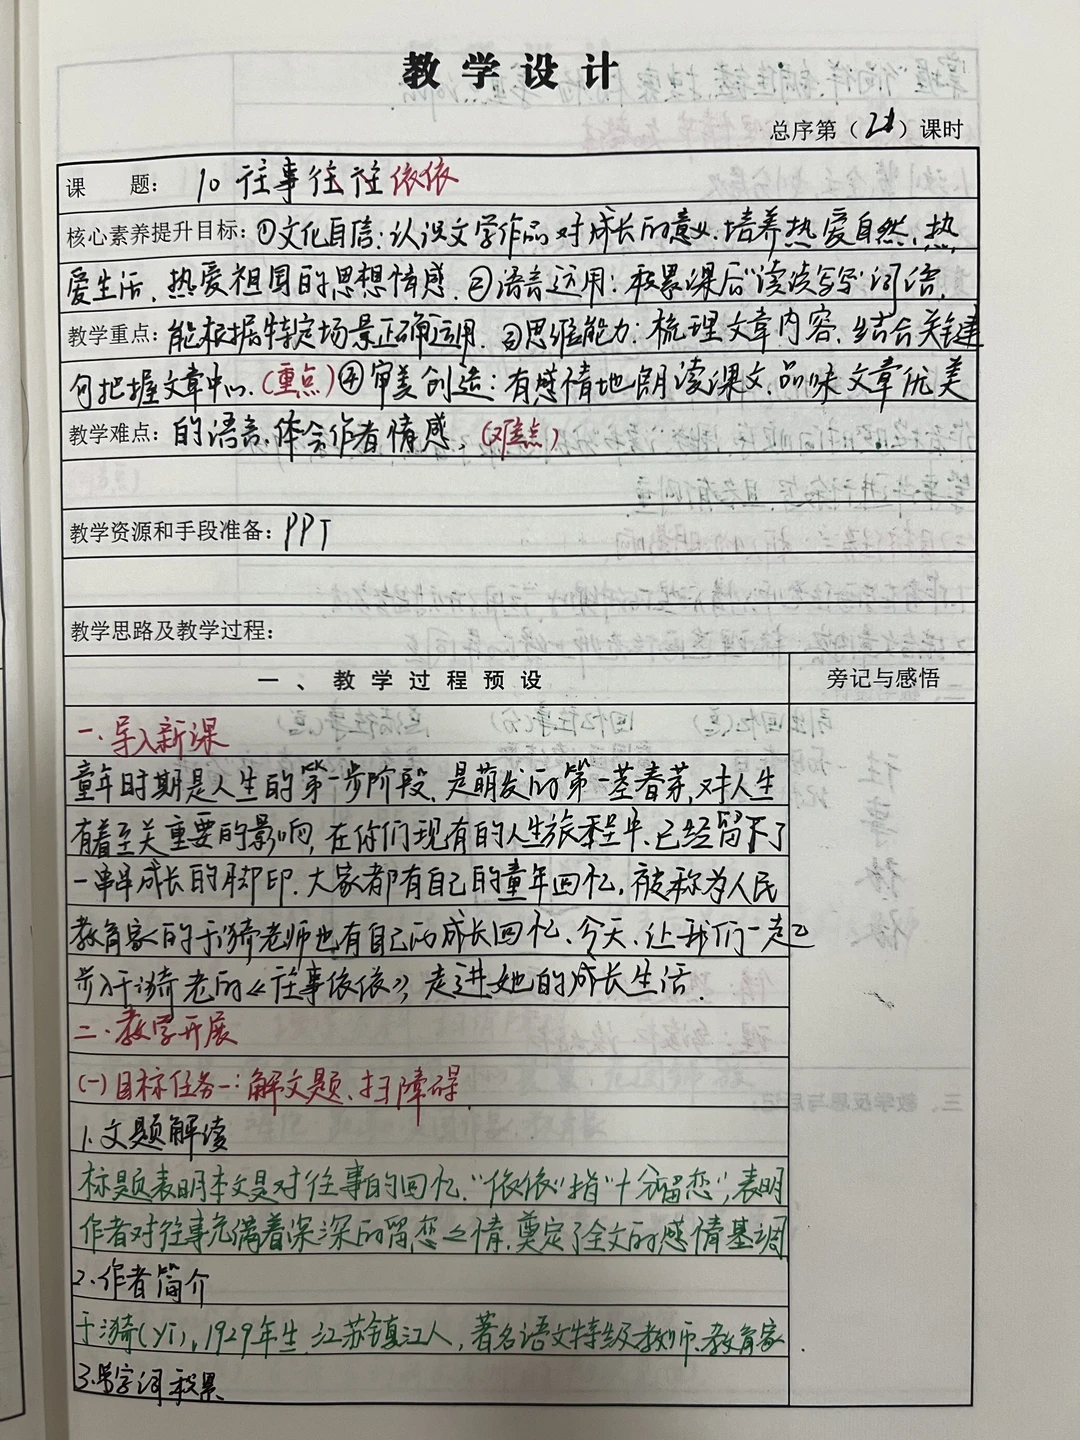 教学设计
总序第（21）课时
课 题：10 往事往往依依
核心素养提升目标：①文化自信：认识文学作品对成长的意义，培养热爱自然、热
爱生活、热爱祖国的思想情感。②语言运用：积累课后“读读写写”词语，
教学重点：能根据特定场景正确运用。③思维能力：梳理文章内容，结合关键
句把握文章中心。（重点）④审美创造：有感情地朗读课文，品味文章优美
教学难点：的语言，体会作者情感。（难点）
教学资源和手段准备：PPT
教学思路及教学过程：
一、教学过程预设
旁记与感悟
一、导入新课
童年时期是人生的第一步阶段，是萌发的第一茎春芽，对人生
有着至关重要的影响，在你们现有的人生旅程中，已经留下了
一串串成长的脚印。大家都有自己的童年回忆，被称为人民
教育家的于漪老师也有自己的成长回忆、今天，让我们一起
步入于漪老的《往事依依》，走进她的成长生活。
二、教学开展
（一）目标任务一：解文题、扫障碍
1.文题解读
标题表明本文是对往事的回忆，“依依”指“十分留恋”，表明
作者对往事充满着深深的留恋之情，奠定了全文的感情基调
2.作者简介
于漪（yī），1929年生，江苏镇江人，著名语文特级教师、教育家
3.字词积累